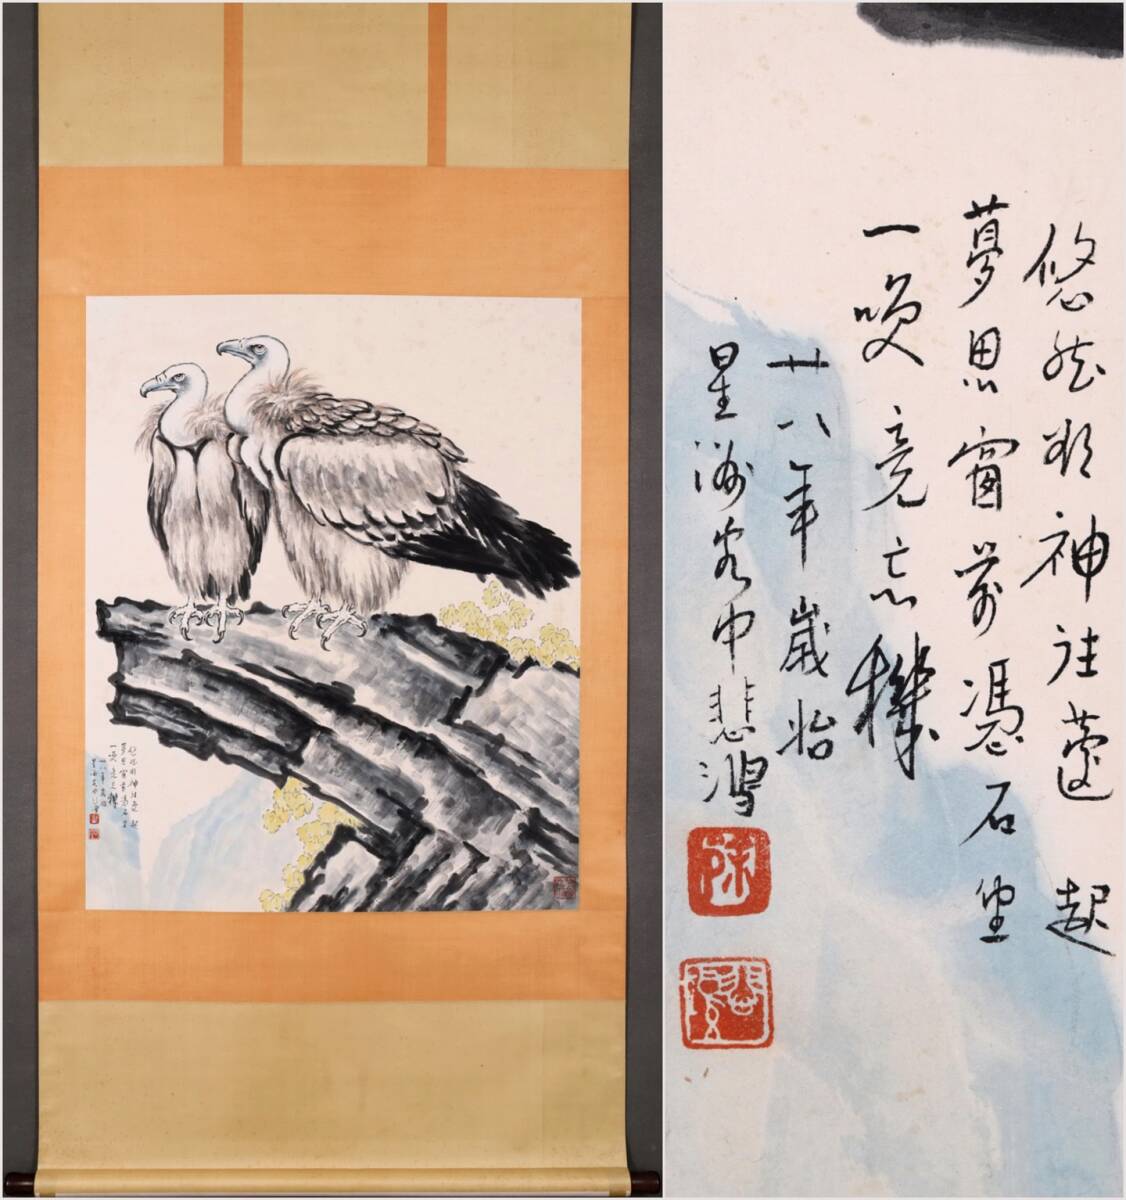 悠然 神往蘧起
夢思窗前馮石坐
一喚竟忘機
廿八年歲始
星洲客中悲鴻